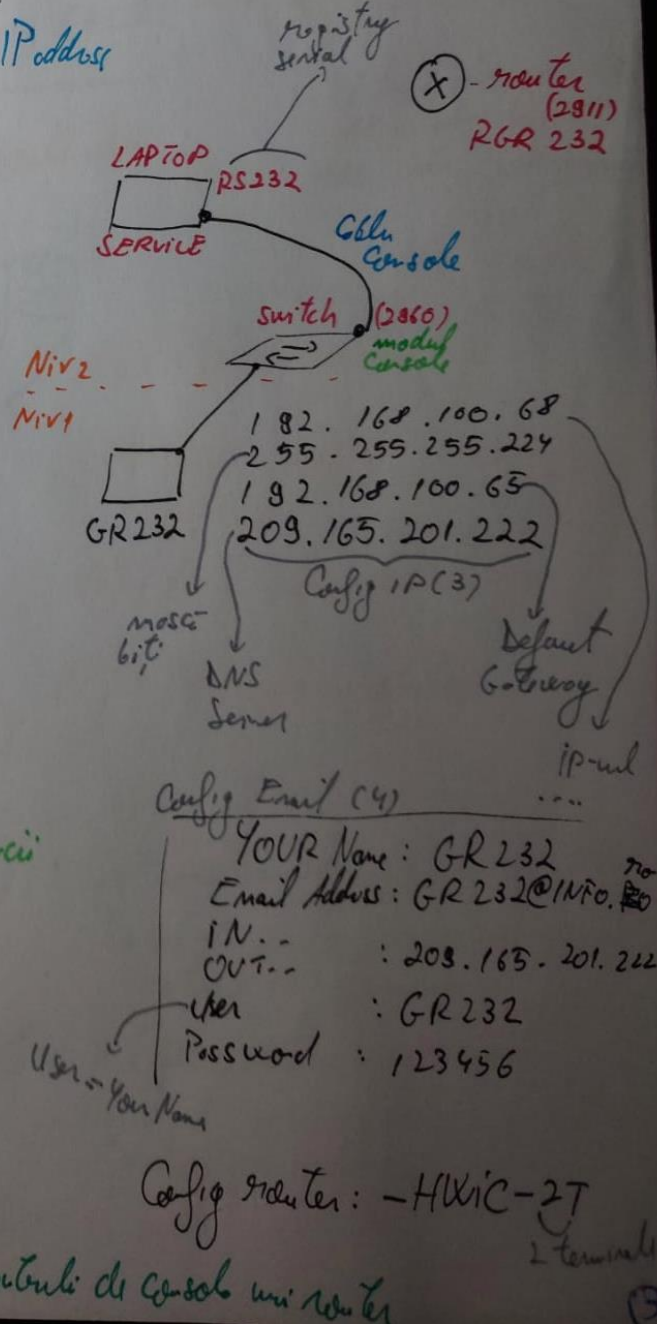 IP address
registry
serial
X - router
(2911)
RGR 232
LAPTOP
RS232
SERVICE
Cablu
Console
switch (2960)
modul
Console
Niv2
Niv1
192.168.100.68
255.255.255.224
192.168.100.65
GR232
209.165.201.222
Config IP(3)
mască
biți
DNS
Server
Default
Gateway
ip-ul
....
Config Email (4)
YOUR Name: GR232
ro
Email Address: GR232@INFO.
IN..
OUT.. : 209.165.201.222
User : GR232
Password : 123456
User = Your Name
Config router: -HWIC-2T
2 terminale
de consola unui router